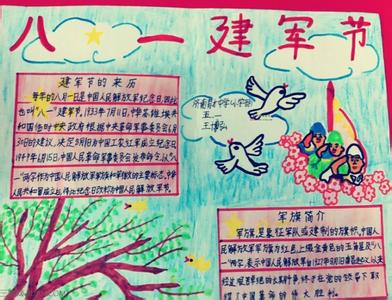 八一建军节
建军节的来历
每年的八月一日是中国人民解放军纪念日,因此
也叫"八一"建军节。1933年7月11日,中华苏维埃共
和国临时中央政府根据中央革命军事委员会6月
30日的建议,决定8月1日为中国工农红军成立纪念日
1949年6月15日,中国人民革命军事委员会发布命令,以"八
一"两字作为中国人民解放军军旗和军徽的主要标志。中华
人民共和国成立后,将此纪念日改称中国人民解放军节。
五一
王博弘
军旗简介
军旗,是象征军队或建制的旗帜,中国人
民解放军军旗为红色,上缀金黄色的五角星及"八
一"两字,表示中国人民解放军自1927年8月1日南昌起义以来
经过艰苦卓绝的长期斗争,终于在党的领导下取
得了中国革命的伟大胜利。